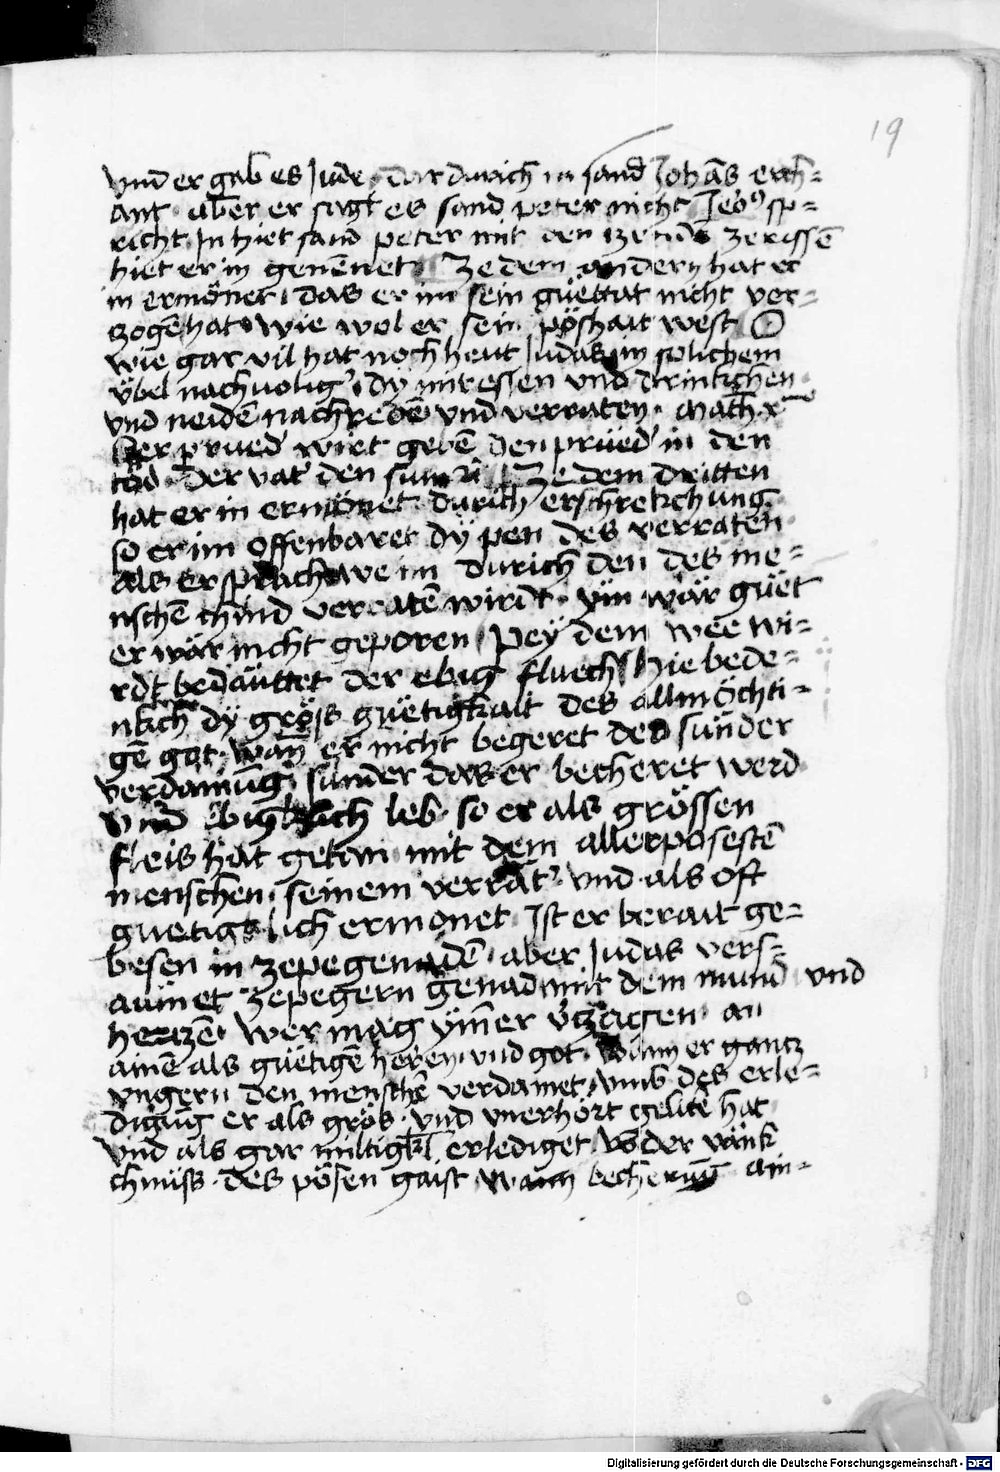 19
vnd er gab es Jude · dar durich in sand Johãs erch=
ant · aber er sagt es sand peter nicht Jeo⁹ sp=
richt · In hiet sand peter mit den zendẽ zerissẽ
hiet er in genẽnet · Ze dem andern hat er
in ermönet · das er im sein guettat nicht ver=
zogẽ hat · wie wol er sein pöshait west O
wie gar vil hat noch heut Judas in solichem
übel nachuolig' · dy mitessen vnd drinkchen
vnd neidẽ nachredẽ vnd verraten · Math · x
Der prued' wirt gebẽ den prüed' in den
tod · Der vat' den sun Ze dem dritten
hat er in ermönet · durich erschrekchung
so er im offenbaret dy pen des verraten
als er sprach we im durich den des me=
nschẽ chind verratẽ wirdt · ym wär güet
er wär nicht geporen Pey dem wee wi=
rdt bedäuttet der ebig fluech Hie bede=
nkch dy grös guetigkait des allmöchti=
gẽ got · wañ er nicht begeret des sünder
verdamũg · sunder das er becheret werd
vnd ebigklich leb · so er als grössen
fleis hat getan mit dem allerposestẽ
menschen · seinem verrat' · vnd als oft
guetigklich ermonet Ist er berait ge=
besen in zepegenadẽ · aber Judas vers=
aumet zepegern genad mit dem mund vnd
hertzẽ · Wer mag ym̃er v'zagen an
ainẽ als guetigẽ herẽn vnd got · wann er gantz
vngern den menschẽ verdamet · vmb des erle=
digũg er als grös · vnd vnerhört gelitẽ hat
vnd als gar miltigkl' erlediget võ der vänk
chnüss · des pösen gaist becherũg ain=
Digitalisierung gefördert durch die Deutsche Forschungsgemeinschaft - DFG